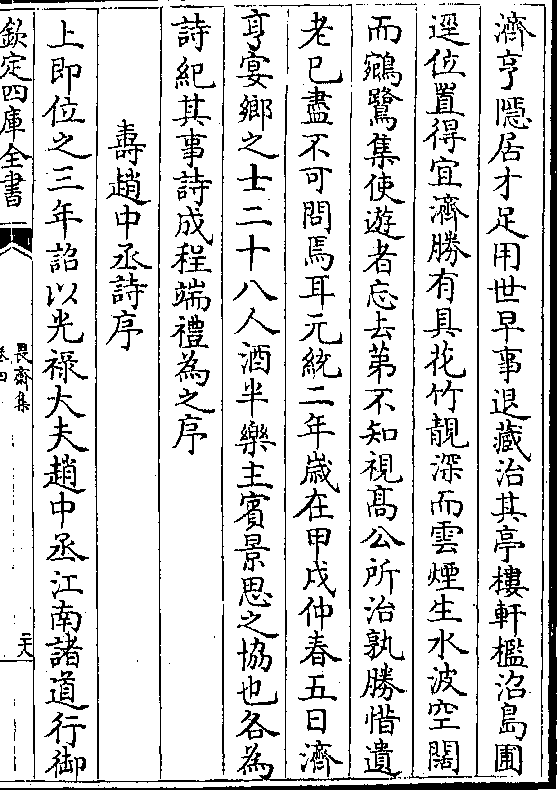 濟亨隱居才足用世早事退藏治其亭樓軒檻沼島圃
逕位置得宜濟勝有具花竹靚深而雲煙生水波空闊
而鵷鷺集使遊者忘去第不知視髙公所治孰勝惜遺
老已盡不可問焉耳元統二年嵗在甲戌仲春五日濟
亨宴鄉之士二十八人酒半樂主賓景思之協也各為
詩紀其事詩成程端禮為之序
壽趙中丞詩序
上即位之三年詔以光祿大夫趙中丞江南諸道行御
欽定四庫全書
畏齋集
卷四
二六